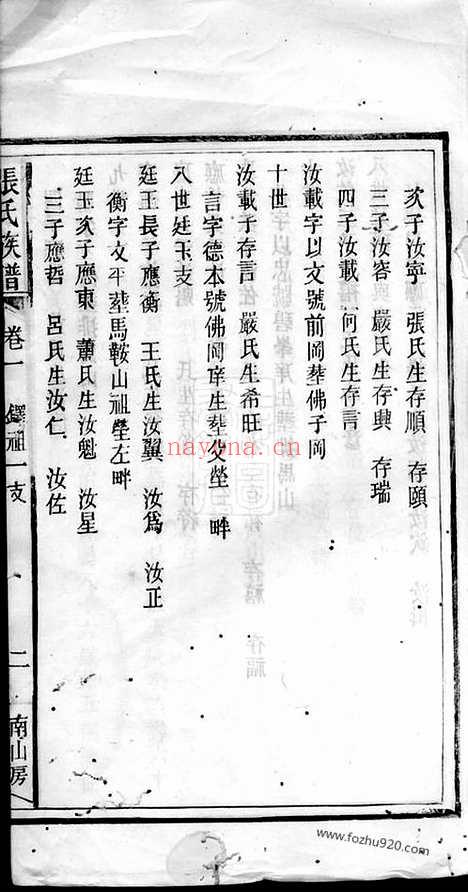 次子汝寧　張氏生存順　存頤
三子汝容　嚴氏生存興　存瑞
四子汝載　何氏生存言
汝載字以文號前岡塟佛子岡
十世
汝載子存言　嚴氏生希旺
言字德本號佛岡庠生塟父塋　畔
八世廷玉支
廷玉長子應衡　王氏生汝翼　汝為　汝正
衡字文平塟馬鞍山祖塋左畔
廷玉次子應東　蕭氏生汝魁　汝星
三子應哲　呂氏生汝仁　汝佐
張氏族譜　卷一　鐸祖一支　二　南山房
nayona.cn
www.fozhu920.com